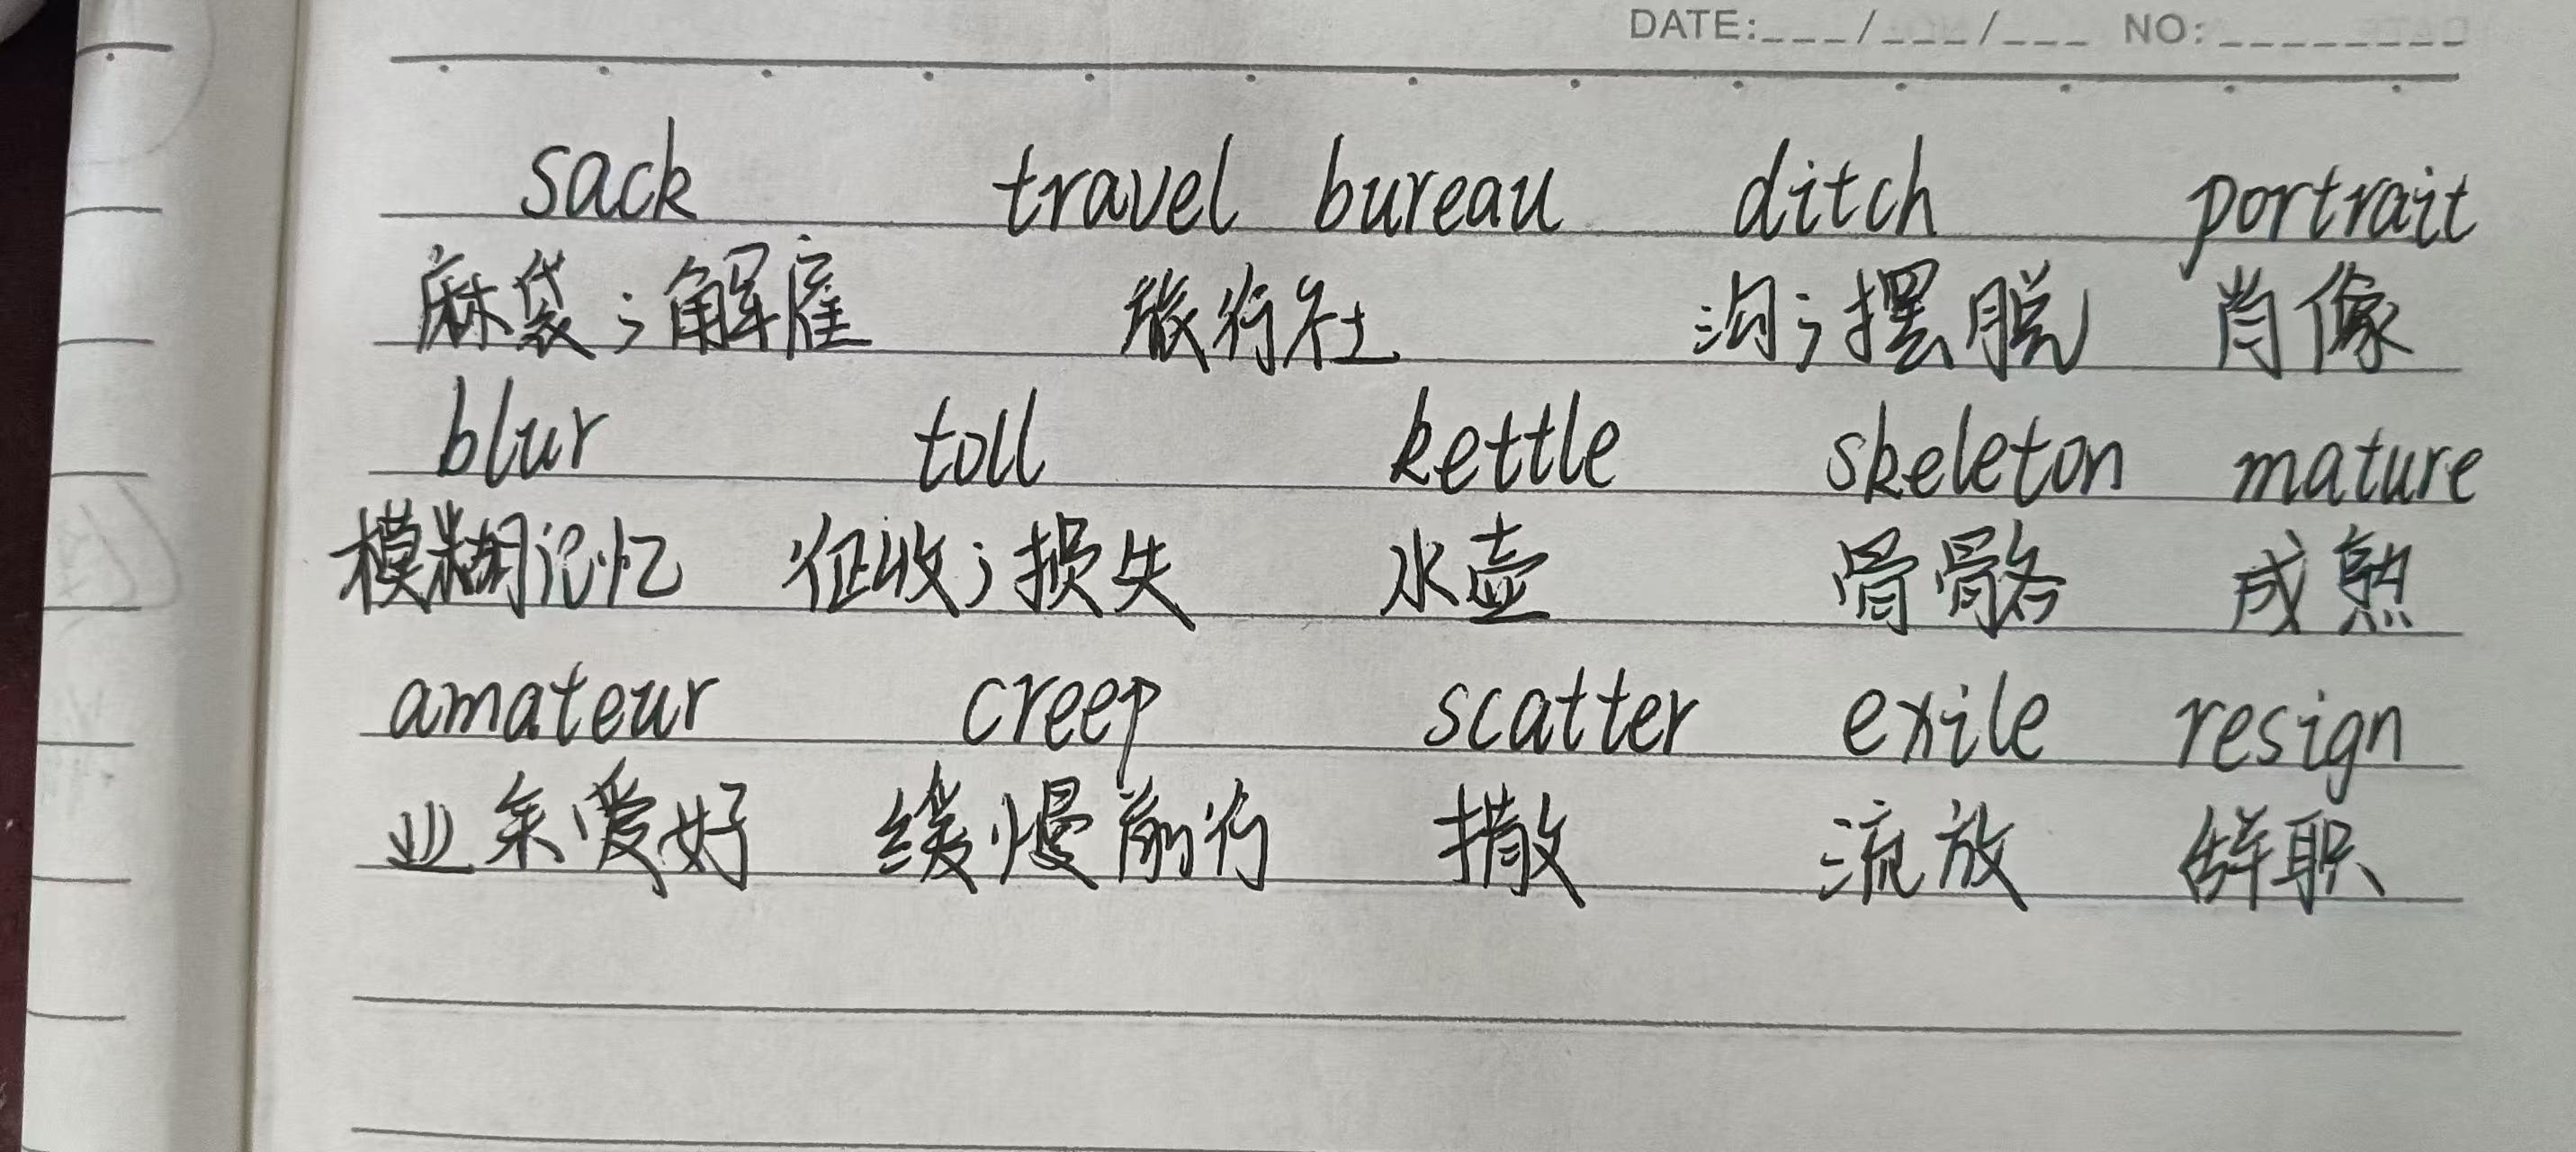 DATE:___/___/___ NO:________
sack travel bureau ditch portrait
麻袋；解雇 旅行社 沟；摆脱 肖像
blur toll kettle skeleton mature
模糊记忆 征收；损失 水壶 骨骼 成熟
amateur creep scatter exile resign
业余爱好 缓慢前行 撒 流放 辞职